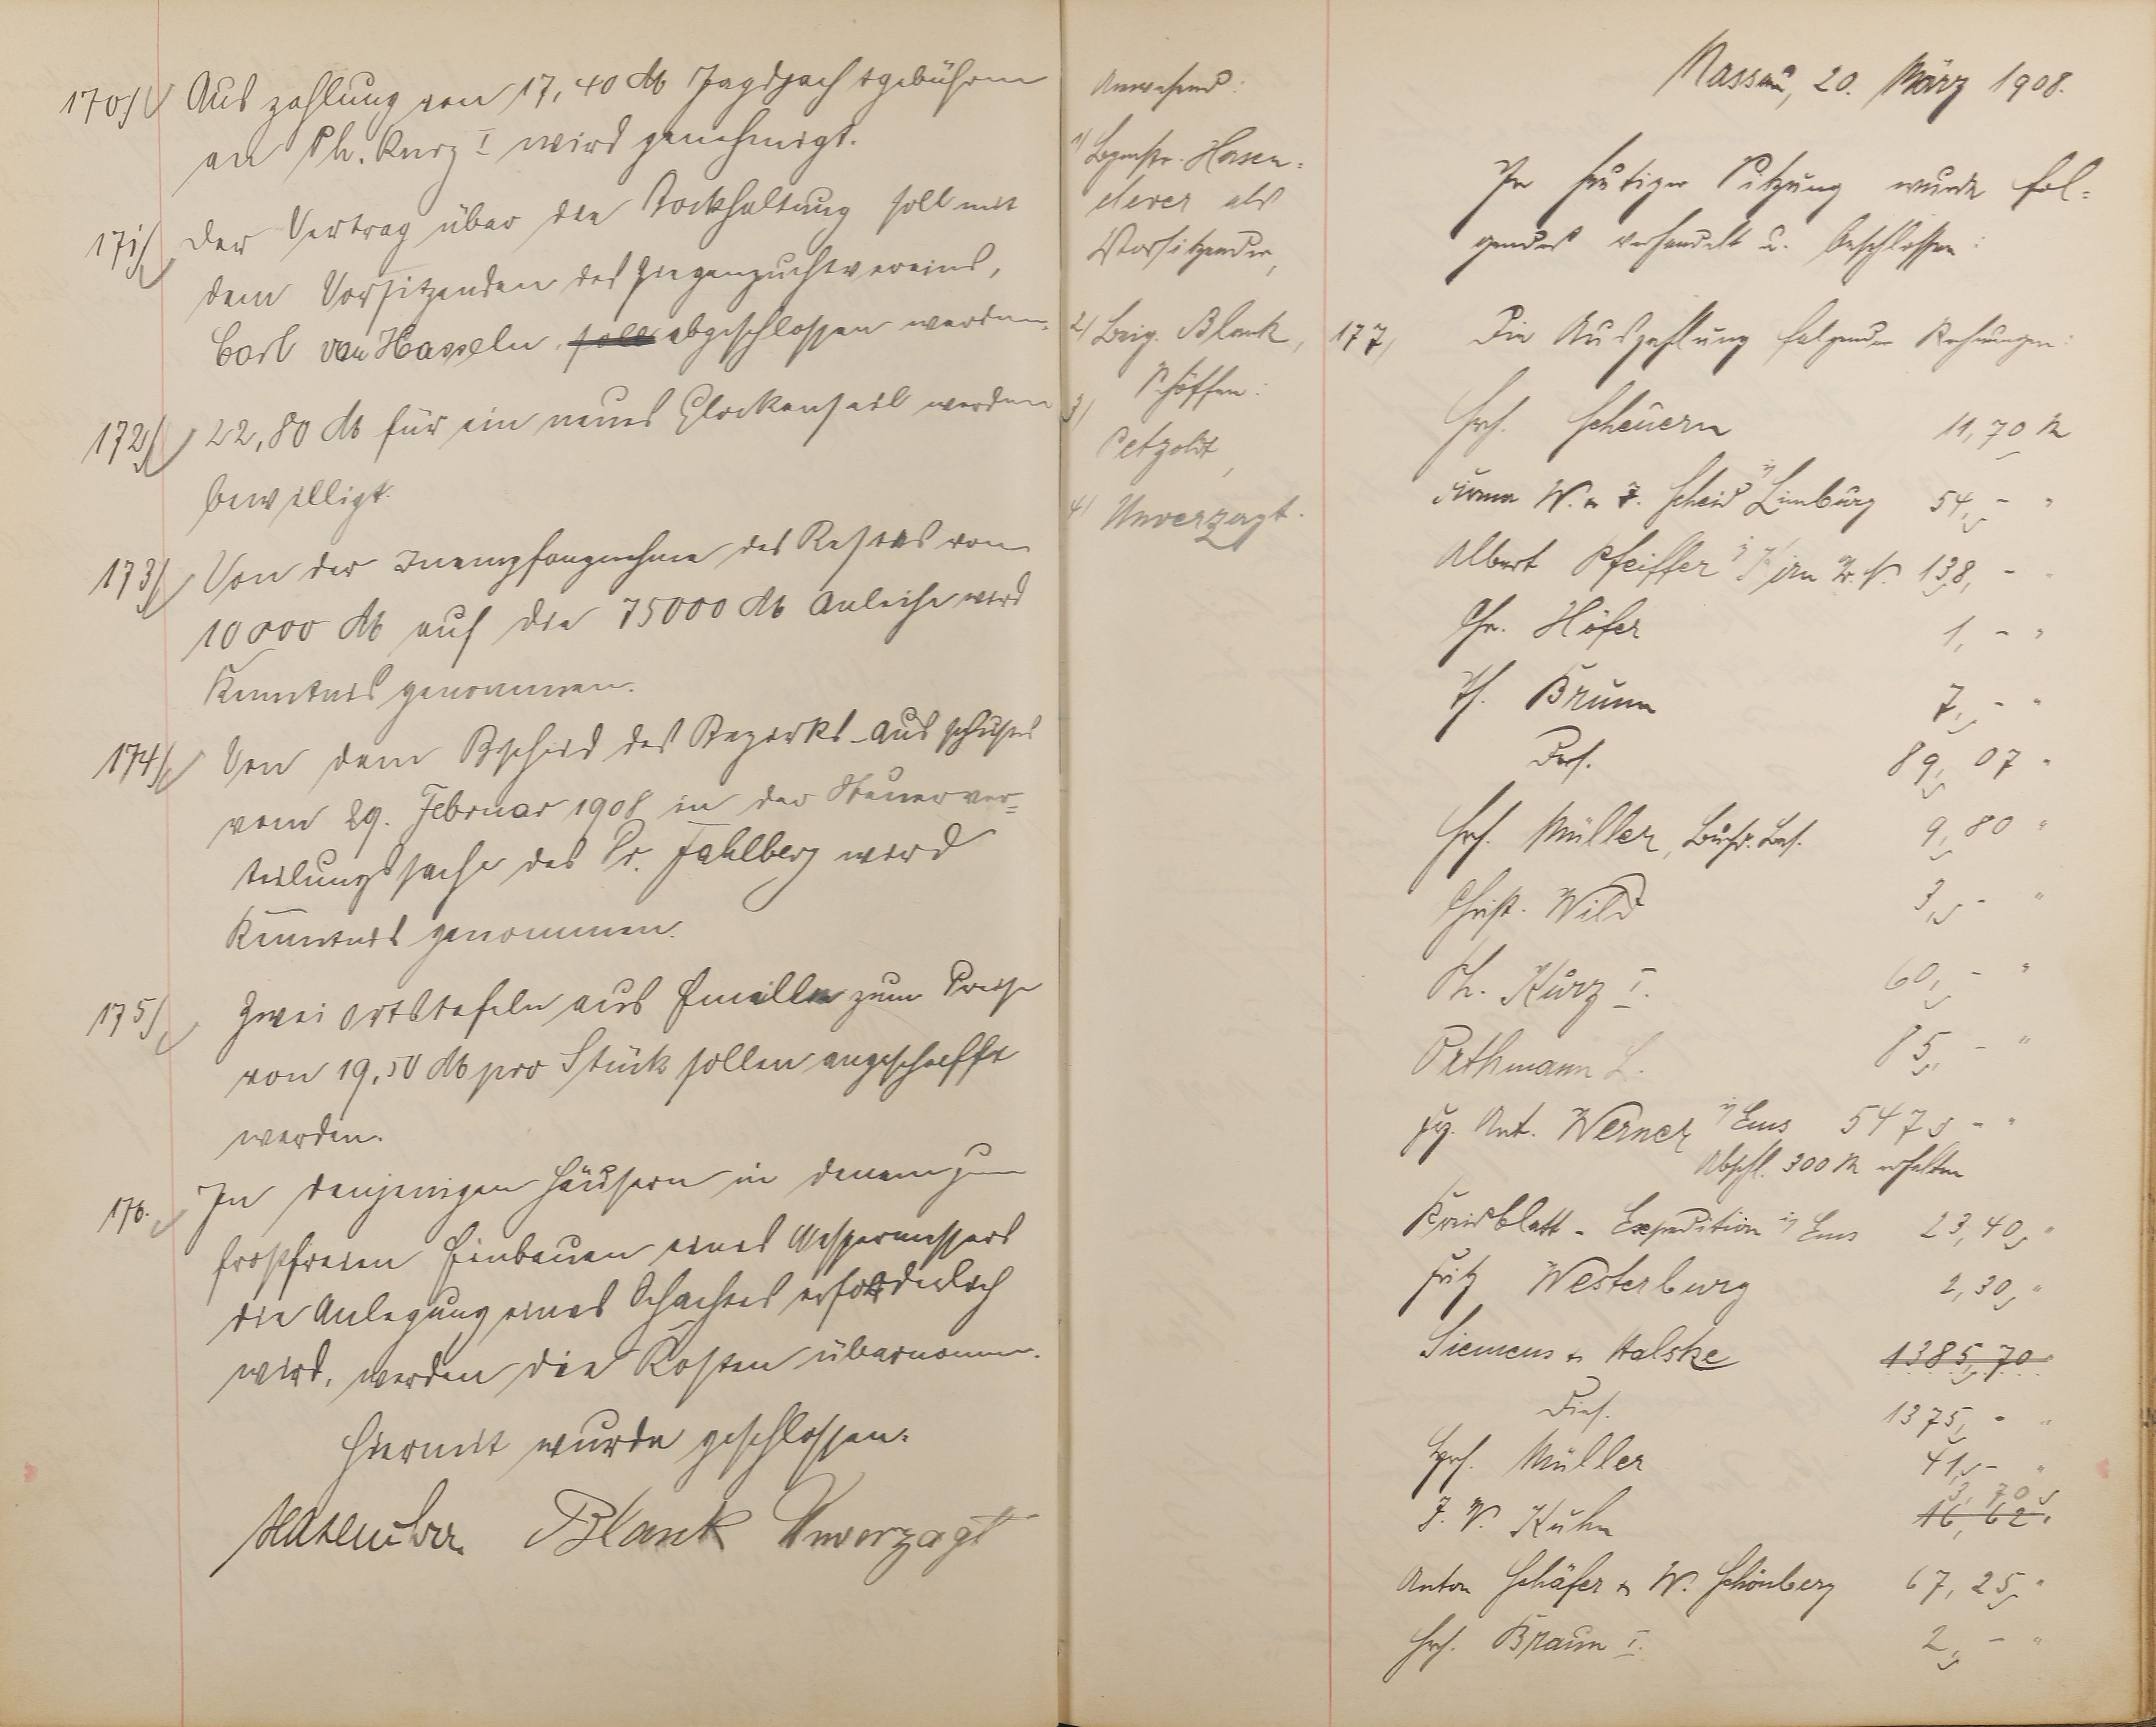 170./ Auszahlung von 17,40 M Jagdpachtgebühren
an Ph. Kurz I wird genehmigt.
171/ Der Vertrag über die Bockhaltung soll mit
dem Vorsitzenden des Ziegenzuchtvereins,
Carl von Hasseln soll abgeschlossen werden.
172/ 22,80 M für ein neues Glockenseil werden
bewilligt.
173/ Von der Inempfangnahme des Restes von
10 000 M auf die 75000 M Anleihe wird
Kenntnis genommen.
174/ Von dem Bescheid des Bezirks-Ausschusses
vom 29. Februar 1908 in der Steuerver=
teilungssache des Dr. Fahlberg wird
Kenntnis genommen.
175/ Zwei Ortstafeln aus Emaille zum Preise
von 19,50 M pro Stück sollen angeschafft
werden.
176. In denjenigen Häusern in denen zum
frostfreien Einbauen eines Wassermessers
die Anlegung eines Schachtes erforderlich
wird, werden die Kosten übernomm.
Hiermit wurde geschlossen.
Hasenclever Blank Unverzagt
Anwesend:
1) Bgmstr. Hasen=
clever als
Vorsitzender,
2) Beig. Blank,
Schöffen:
3)
Petzoldt,
4) Unverzagt.
Nassau, 20. März 1908.
In heutiger Sitzung wurde fol=
gendes verhandelt u. beschlossen:
177) Die Auszahlung folgender Rechnungen:
Hch. Scheuern 11,70 M
Firma W. u. J. Scheid in Limburg 54,- "
Albert Pfeiffer in 138,- "
Chr. Höfer 1,- "
Ph. Brunn 7,- "
Ders. 89,07 "
Hch. Müller, 9,80 "
Christ. Wild 3,- "
Ph. Kurz I. 60,- "
Pethmann L. 85,- "
Ant. Werner in Ems 547,- "
Abschl. 300 M erhalten
Kreisblatt-Expedition in Ems 23,40 "
Fritz Westerburg 2,30 "
Siemens & Halske 1385,70
Dies. 1375,- "
Müller 41,- "
3,70
J. W. Kuhn 16,62 "
Anton Schäfer & W. Schönberg 67,25 "
Hch. Braun I. 2,- "